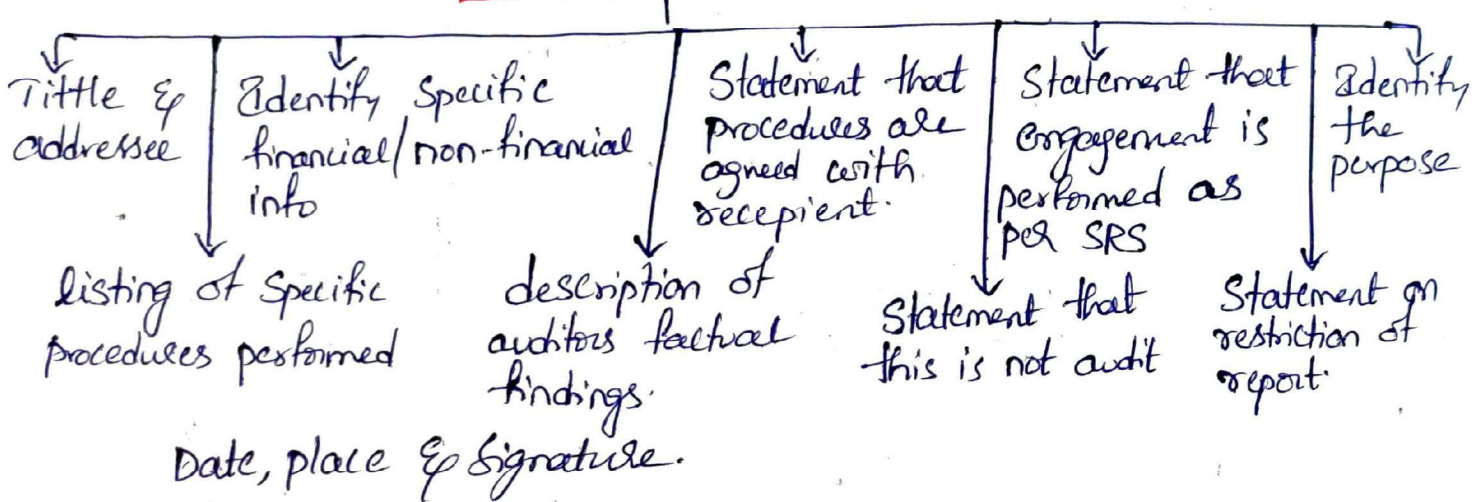 Tittle &
addressee
Identify Specific
financial/non-financial
info
Statement that
procedures are
agreed with
recepient.
Statement that
engagement is
performed as
per SRS
Identify
the
perpose
listing of Specific
procedures performed
description of
auditors factual
findings.
Statement that
this is not audit
Statement on
restriction of
report.
Date, place & Signature.